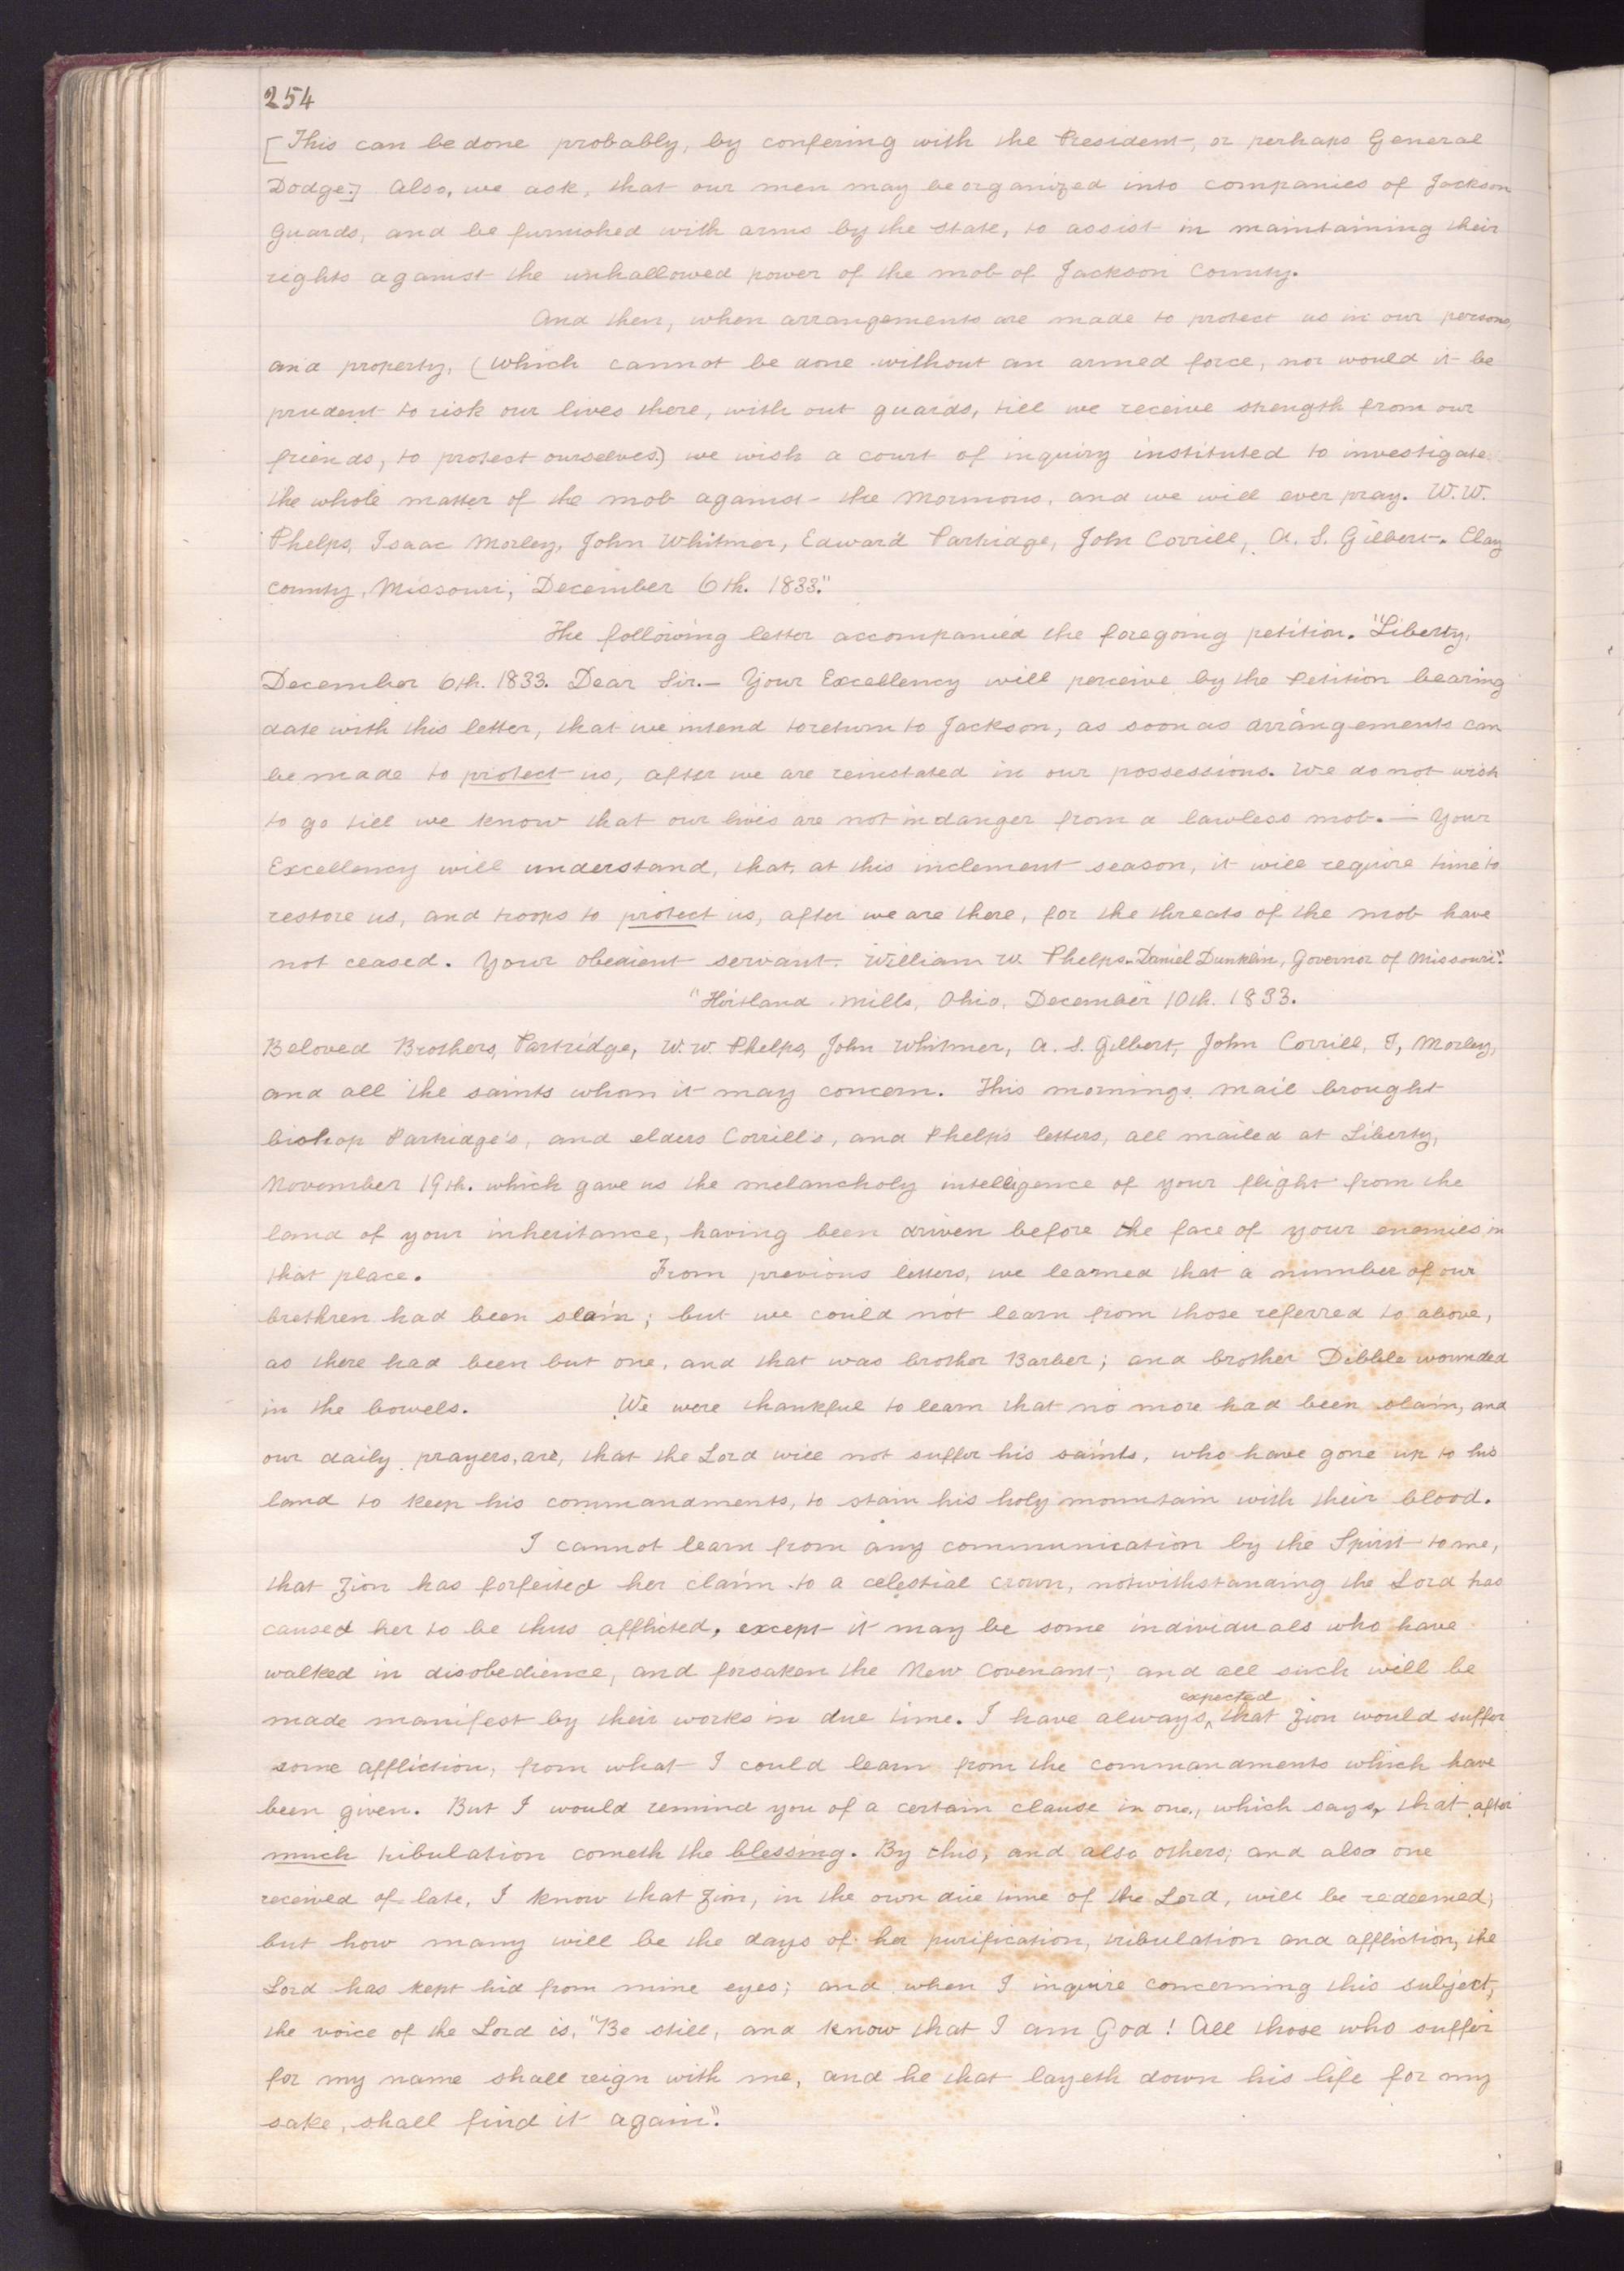 254
[This can be done probably, by confering with the President, or perhaps General
Dodge.] Also, we ask, that our men may be organized into companies of Jackson
Guards, and be furnished with arms by the state, to assist in maintaining their
rights against the unhallowed power of the mob of Jackson County.
And then, when arrangements are made to protect us in our persons,
and property, (which cannot be done without an armed force, nor would it be
prudent to risk our lives there, with out guards, till we receive strength from our
friends, to protect ourselves.) we wish a court of inquiry instituted to investigate
the whole matter of the mob against the Mormons, and we will ever pray. W.W.
Phelps, Isaac Morley, John Whitmer, Edward Partridge, John Corrill, A. S. Gilbert. Clay
county, Missouri, December 6th. 1833."
The following letter accompanied the foregoing petition. "Liberty,
December 6th. 1833. Dear Sir.— Your Excellency will perceive by the Petition bearing
date with this letter, that we intend to return to Jackson, as soon as arrangements can
be made to protect us, after we are reinstated in our possessions. We do not wish
to go till we know that our lives are not in danger from a lawless mob.— Your
Excellency will understand, that, at this inclement season, it will require time to
restore us, and troops to protect us, after we are there, for the threats of the mob have
not ceased. Your obedient servant. William W. Phelps. Daniel Dunklin, Governor of Missouri."
"Kirtland Mills, Ohio, December 10th. 1833.
Beloved Brothers, Partridge, W. W. Phelps, John Whitmer, A. S. Gilbert, John Corrill, I, Morley,
and all the saints whom it may concern. This mornings mail brought
bishop Partridge's, and elders Corrill's, and Phelp's letters, all mailed at Liberty,
November 19th. which gave us the melancholy intelligence of your flight from the
land of your inheritance, having been driven before the face of your enemies in
that place. From previous letters, we learned that a number of our
brethren had been slain; but we could not learn from those referred to above,
as there had been but one, and that was brother Barber; and brother Dibble wounded
in the bowels. We were thankful to learn that no more had been slain, and
our daily prayers, are, that the Lord will not suffer his saints, who have gone up to his
land to keep his commandments, to stain his holy mountain with their blood.
I cannot learn from any communication by the Spirit to me,
that Zion has forfeited her claim to a celestial crown, notwithstanding the Lord has
caused her to be thus afflicted, except it may be some individuals who have
walked in disobedience, and forsaken the New Covenant; and all such will be
made manifest by their works in due time. I have always, ^expected that Zion would suffer
some affliction, from what I could learn from the commandments which have
been given. But I would remind you of a certain clause in one, which says, that after
much tribulation cometh the blessing. By this, and also others; and also one
received of late, I know that Zion, in the own due time of the Lord, will be redeemed;
but how many will be the days of her purification, tribulation and affliction, the
Lord has kept hid from mine eyes; and when I inquire concerning this subject,
the voice of the Lord is, "Be still, and know that I am God! All those who suffer
for my name shall reign with me, and he that layeth down his life for my
sake, shall find it again".